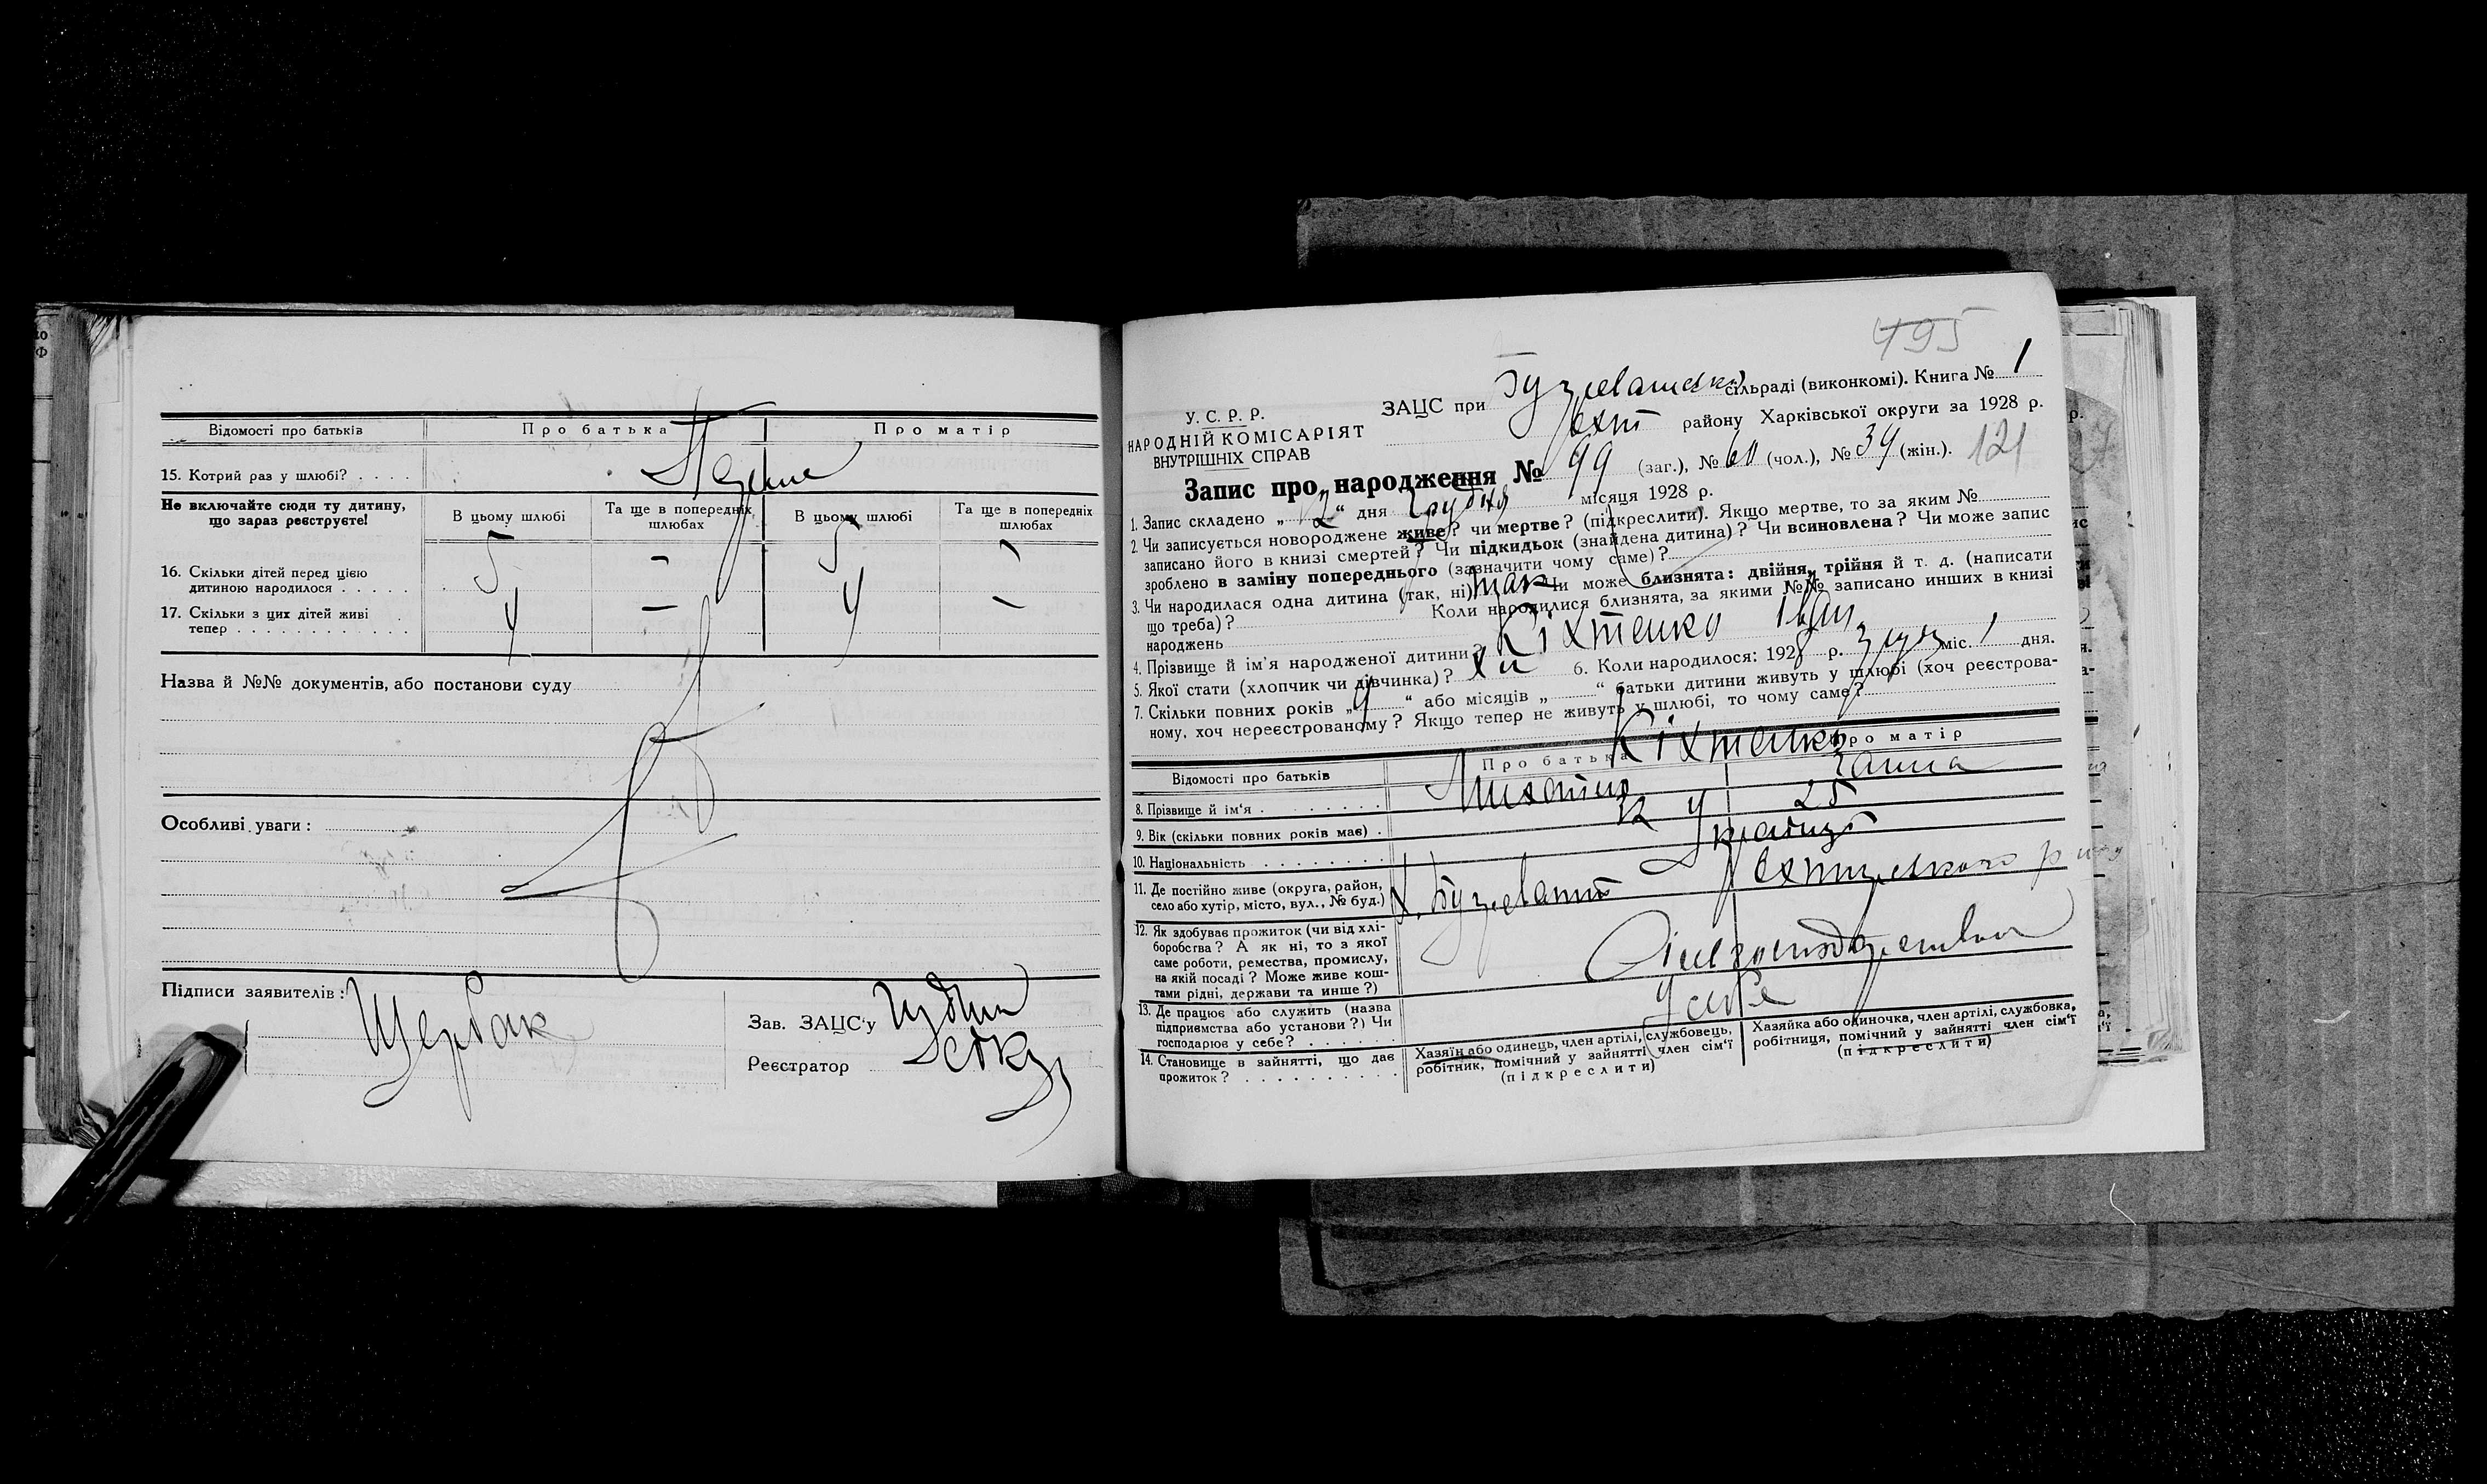 Відомості про батьків
Про батька
Про матір
15. Котрий раз у шлюбі? . . . .
Не включайте сюди ту дитину,
що зараз реєструєте!
В цьому шлюбі
Та ще в попередніх
шлюбах
В цьому шлюбі
Та ще в попередніх
шлюбах
16. Скільки дітей перед цією
дитиною народилося . . . . .
5 – 5 –
17. Скільки з цих дітей живі
тепер . . . . . . . . . . . .
4 – 4 –
Назва й №№ документів, або постанови суду
Особливі уваги:
Підписи заявителів:
Щербак
Зав. ЗАЦС'у
Реєстратор
495
У. С. Р. Р.
НАРОДНІЙ КОМІСАРІЯТ
ВНУТРІШНІХ СПРАВ
ЗАЦС при сільраді (виконкомі). Книга № 1
Охт району Харківської округи за 1928 р.
Запис про народження № 99 (заг.), № 60 (чол.), № 39 (жін.). 121
1. Запис складено „12“ дня Грудня місяця 1928 р.
2. Чи записується новороджене живе? чи мертве? (підкреслити). Якщо мертве, то за яким №
записано його в книзі смертей? Чи підкидьок (знайдена дитина)? Чи всиновлена? Чи може запис
зроблено в заміну попереднього (зазначити чому саме)?
3. Чи народилася одна дитина (так, ні) так Чи може близнята: двійня, трійня й т. д. (написати
що треба)? Коли народилися близнята, за якими №№ записано инших в книзі
народжень
4. Прізвище й ім'я народженої дитини? Кіхтенко Іван
5. Якої стати (хлопчик чи дівчинка)? 6. Коли народилося: 1928 р. міс. 1 дня.
7. Скільки повних років „9“ або місяців „ “ батьки дитини живуть у шлюбі (хоч реєстрова-
ному, хоч нереєстрованому? Якщо тепер не живуть у шлюбі, то чому саме?
Відомості про батьків
Про батька
Про матір
Кіхтенко
8. Прізвище й ім'я . . . . . . .
Ганна
9. Вік (скільки повних років має) .
25
10. Національність . . . . . . . .
Українці
11. Де постійно живе (округа, район,
село або хутір, місто, вул., № буд.)
12. Як здобуває прожиток (чи від хлі-
боробства? А як ні, то з якої
саме роботи, ремества, промислу,
на якій посаді? Може живе кош-
тами рідні, держави та инше?)
13. Де працює або служить (назва
підприємства або установи?) Чи
господарює у себе? . . . . . .
У себе
14. Становище в зайнятті, що дає
прожиток? . . . . . . . . . .
Хазяїн або одинець, член артілі, службовець,
робітник, помічний у зайнятті член сім'ї
(підкреслити)
Хазяйка або одиночка, член артілі, службовка,
робітниця, помічний у зайнятті член сім'ї
(підкреслити)